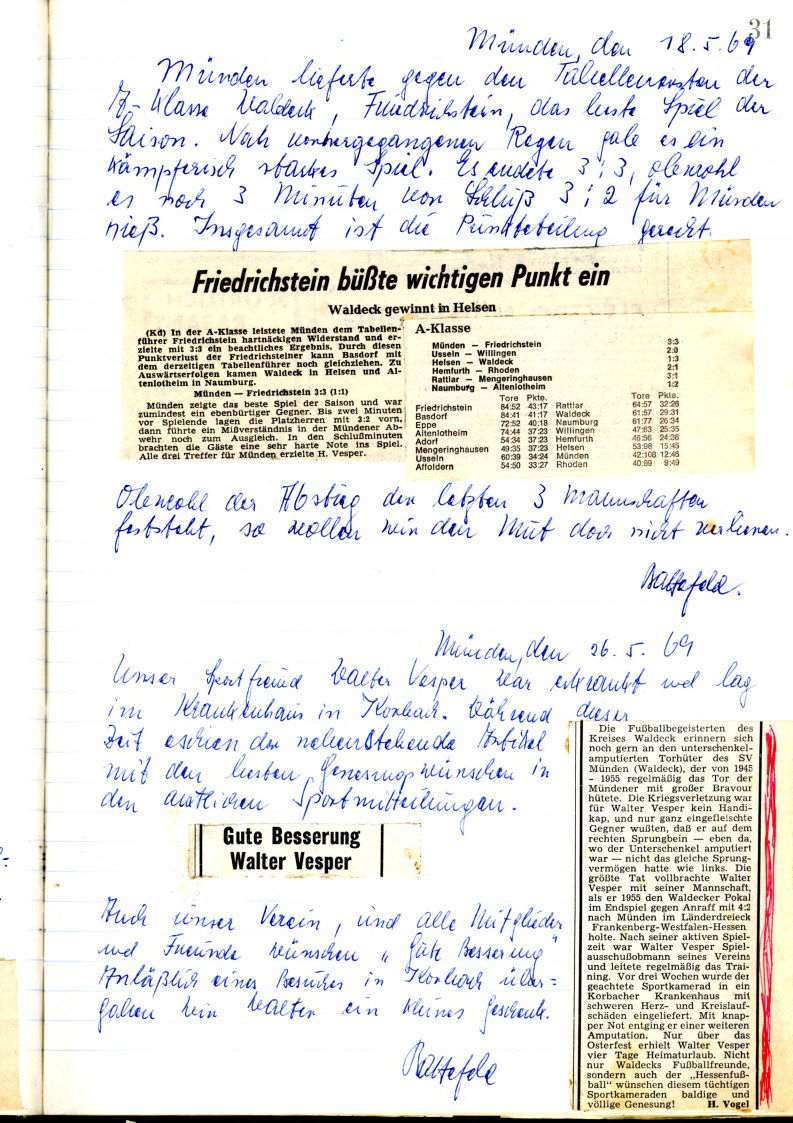 31
Münden, den 18.5.69
Münden lieferte gegen den Tabellenersten der
A-Klasse Waldeck, Friedrichstein, das beste Spiel der
Saison. Nach vorhergegangenen Regen gab es ein
kämpferisch starkes Spiel. Es endete 3:3, obwohl
es noch 3 Minuten vor Schluß 3:2 für Münden
hieß. Insgesamt ist die Punkteteilung gerecht.
Friedrichstein büßte wichtigen Punkt ein
Waldeck gewinnt in Helsen
(Kd) In der A-Klasse leistete Münden dem Tabellen-
führer Friedrichstein hartnäckigen Widerstand und er-
zielte mit 3:3 ein beachtliches Ergebnis. Durch diesen
Punktverlust der Friedrichsteiner kann Basdorf mit
dem derzeitigen Tabellenführer noch gleichziehen. Zu
Auswärtserfolgen kamen Waldeck in Helsen und Al-
tenlotheim in Naumburg.
Münden — Friedrichstein 3:3 (1:1)
Münden zeigte das beste Spiel der Saison und war
zumindest ein ebenbürtiger Gegner. Bis zwei Minuten
vor Spielende lagen die Platzherren mit 3:2 vorn,
dann führte ein Mißverständnis in der Mündener Ab-
wehr noch zum Ausgleich. In den Schlußminuten
brachten die Gäste eine sehr harte Note ins Spiel.
Alle drei Treffer für Münden erzielte H. Vesper.
A-Klasse
Münden — Friedrichstein 3:3
Usseln — Willingen 2:0
Helsen — Waldeck 1:3
Hemfurth — Rhoden 2:1
Rattlar — Mengeringhausen 3:1
Naumburg — Altenlotheim 1:2
Tore Pkte. Tore Pkte.
Friedrichstein 84:52 43:17 Rattlar 64:57 32:28
Basdorf 84:41 41:17 Waldeck 61:57 29:31
Eppe 72:52 40:18 Naumburg 61:77 26:34
Altenlotheim 74:44 37:23 Willingen 47:63 25:35
Adorf 54:34 37:23 Hemfurth 46:56 24:36
Mengeringhausen 49:35 37:23 Helsen 53:98 15:45
Usseln 60:39 34:24 Münden 42:108 12:46
Affoldern 54:50 33:27 Rhoden 40:89 9:49
Obwohl der Abstieg der letzten 3 Mannschaften
feststeht, so wollen wir den Mut doch nicht verlieren.
Battefeld.
Münden, den 26.5.69
Unser Sportfreund Walter Vesper war erkrankt und lag
im Krankenhaus in Korbach. Während dieser
Zeit erschien der nebenstehende Artikel
mit den besten Genesungswünschen in
den amtlichen Sportmitteilungen.
Gute Besserung
Walter Vesper
Auch unser Verein, und alle Mitglieder
und Freunde wünschen „Gute Besserung"
Anläßlich eines Besuches in Korbach über=
gaben wir Walter ein kleines Geschenk.
Battefeld
Die Fußballbegeisterten des
Kreises Waldeck erinnern sich
noch gern an den unterschenkel-
amputierten Torhüter des SV
Münden (Waldeck), der von 1945
- 1955 regelmäßig das Tor der
Mündener mit großer Bravour
hütete. Die Kriegsverletzung war
für Walter Vesper kein Handi-
kap, und nur ganz eingefleischte
Gegner wußten, daß er auf dem
rechten Sprungbein — eben da,
wo der Unterschenkel amputiert
war — nicht das gleiche Sprung-
vermögen hatte wie links. Die
größte Tat vollbrachte Walter
Vesper mit seiner Mannschaft,
als er 1955 den Waldecker Pokal
im Endspiel gegen Anraff mit 4:2
nach Münden im Länderdreieck
Frankenberg-Westfalen-Hessen
holte. Nach seiner aktiven Spiel-
zeit war Walter Vesper Spiel-
ausschußobmann seines Vereins
und leitete regelmäßig das Trai-
ning. Vor drei Wochen wurde der
geachtete Sportkamerad in ein
Korbacher Krankenhaus mit
schweren Herz- und Kreislauf-
schäden eingeliefert. Mit knap-
per Not entging er einer weiteren
Amputation. Nur über das
Osterfest erhielt Walter Vesper
vier Tage Heimaturlaub. Nicht
nur Waldecks Fußballfreunde,
sondern auch der „Hessenfuß-
ball" wünschen diesem tüchtigen
Sportkameraden baldige und
völlige Genesung! H. Vogel